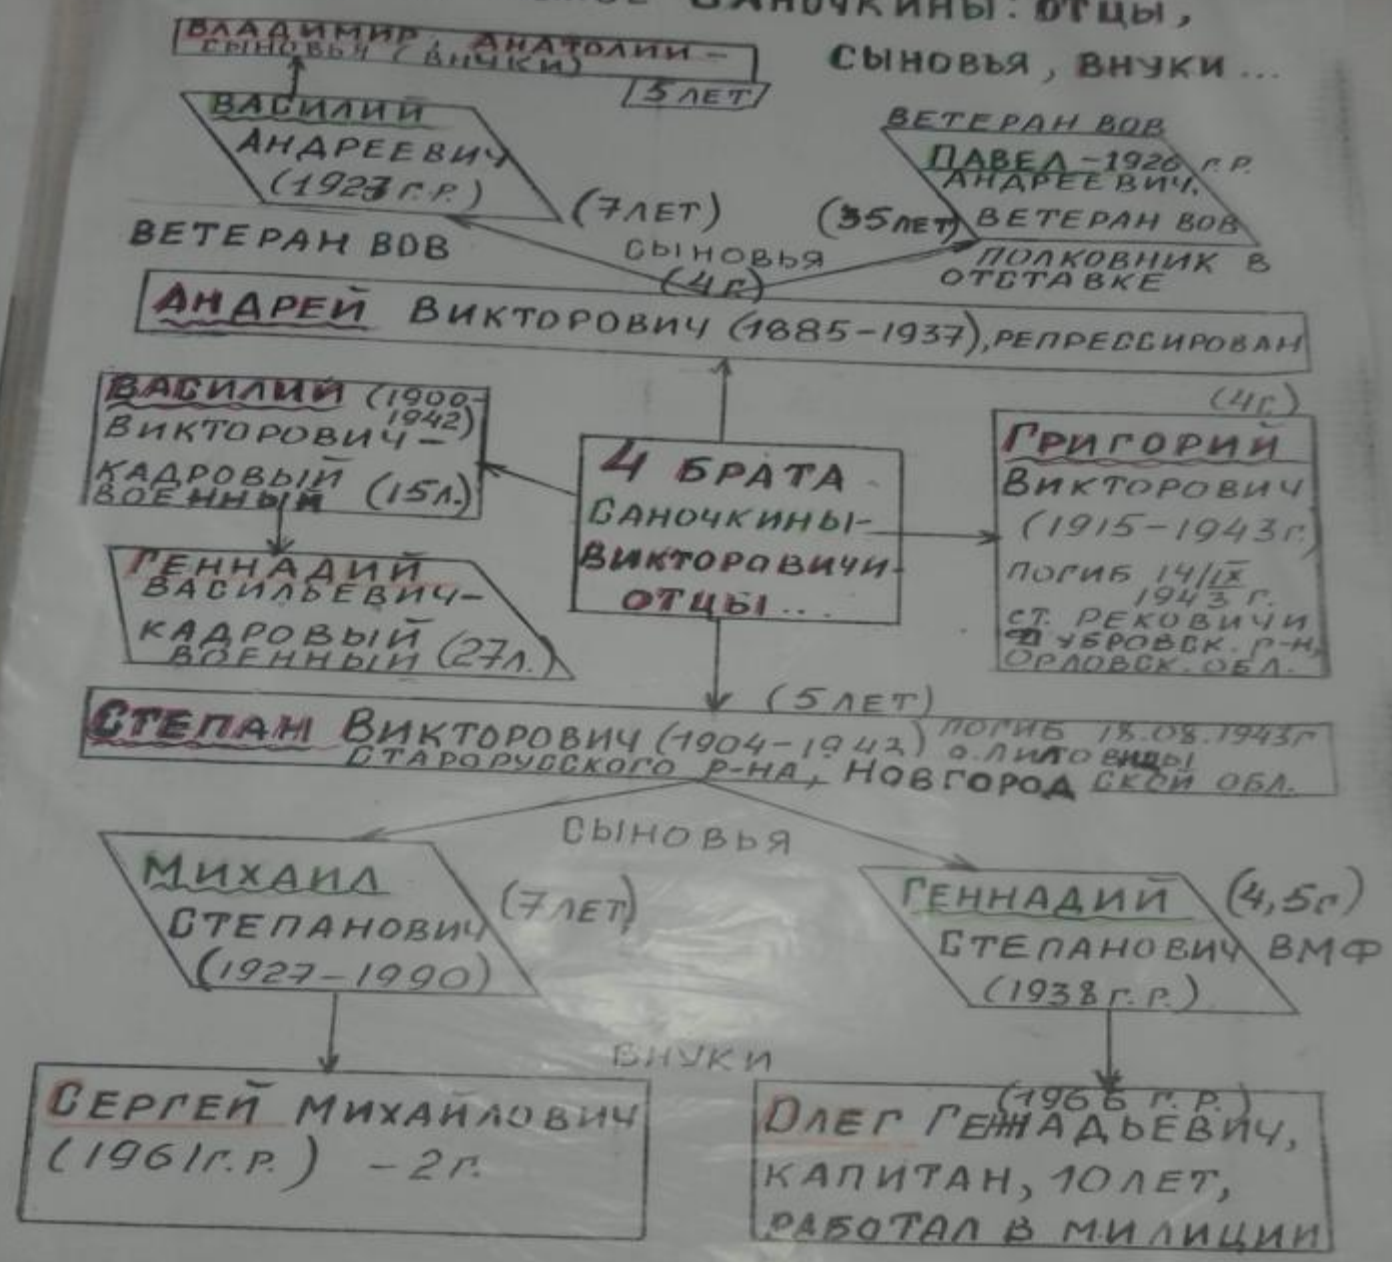 САНОЧКИНЫ: ОТЦЫ,
СЫНОВЬЯ, ВНУКИ...
ВЛАДИМИР, АНАТОЛИЙ –
СЫНОВЬЯ (ВНУКИ)
5 ЛЕТ
ВАСИЛИЙ
АНДРЕЕВИЧ
(1927 Г.Р.)
(7 ЛЕТ)
ВЕТЕРАН ВОВ
ВЕТЕРАН ВОВ
ПАВЕЛ – 1926 Г.Р.
АНДРЕЕВИЧ,
(35 ЛЕТ) ВЕТЕРАН ВОВ
ПОЛКОВНИК В
ОТСТАВКЕ
СЫНОВЬЯ
(4 Г.)
АНДРЕЙ ВИКТОРОВИЧ (1885-1937), РЕПРЕССИРОВАН
ВАСИЛИЙ (1900-
1942)
ВИКТОРОВИЧ –
КАДРОВЫЙ
ВОЕННЫЙ (15 Л.)
4 БРАТА
САНОЧКИНЫ-
ВИКТОРОВИЧИ-
ОТЦЫ...
(4 Г.)
ГРИГОРИЙ
ВИКТОРОВИЧ
(1915-1943 Г.)
ПОГИБ 14/IX
1943 Г.
СТ. РЕКОВИЧИ
ДУБРОВСК. Р-Н,
ОРЛОВСК. ОБЛ.
ГЕННАДИЙ
ВАСИЛЬЕВИЧ-
КАДРОВЫЙ
ВОЕННЫЙ (27 Л.)
(5 ЛЕТ)
СТЕПАН ВИКТОРОВИЧ (1904-1942) ПОГИБ 18.08.1943 Г
СТАРОРУССКОГО Р-НА, НОВГОРОДСКОЙ ОБЛ.
СЫНОВЬЯ
МИХАИЛ
СТЕПАНОВИЧ
(1927-1990)
(7 ЛЕТ)
ГЕННАДИЙ
СТЕПАНОВИЧ
(1938 Г.Р.)
(4,5 Г)
ВМФ
ВНУКИ
СЕРГЕЙ МИХАЙЛОВИЧ
(1961 Г.Р.) – 2 Г.
(1966 Г.Р.)
ОЛЕГ ГЕННАДЬЕВИЧ,
КАПИТАН, 10 ЛЕТ,
РАБОТАЛ В МИЛИЦИИ